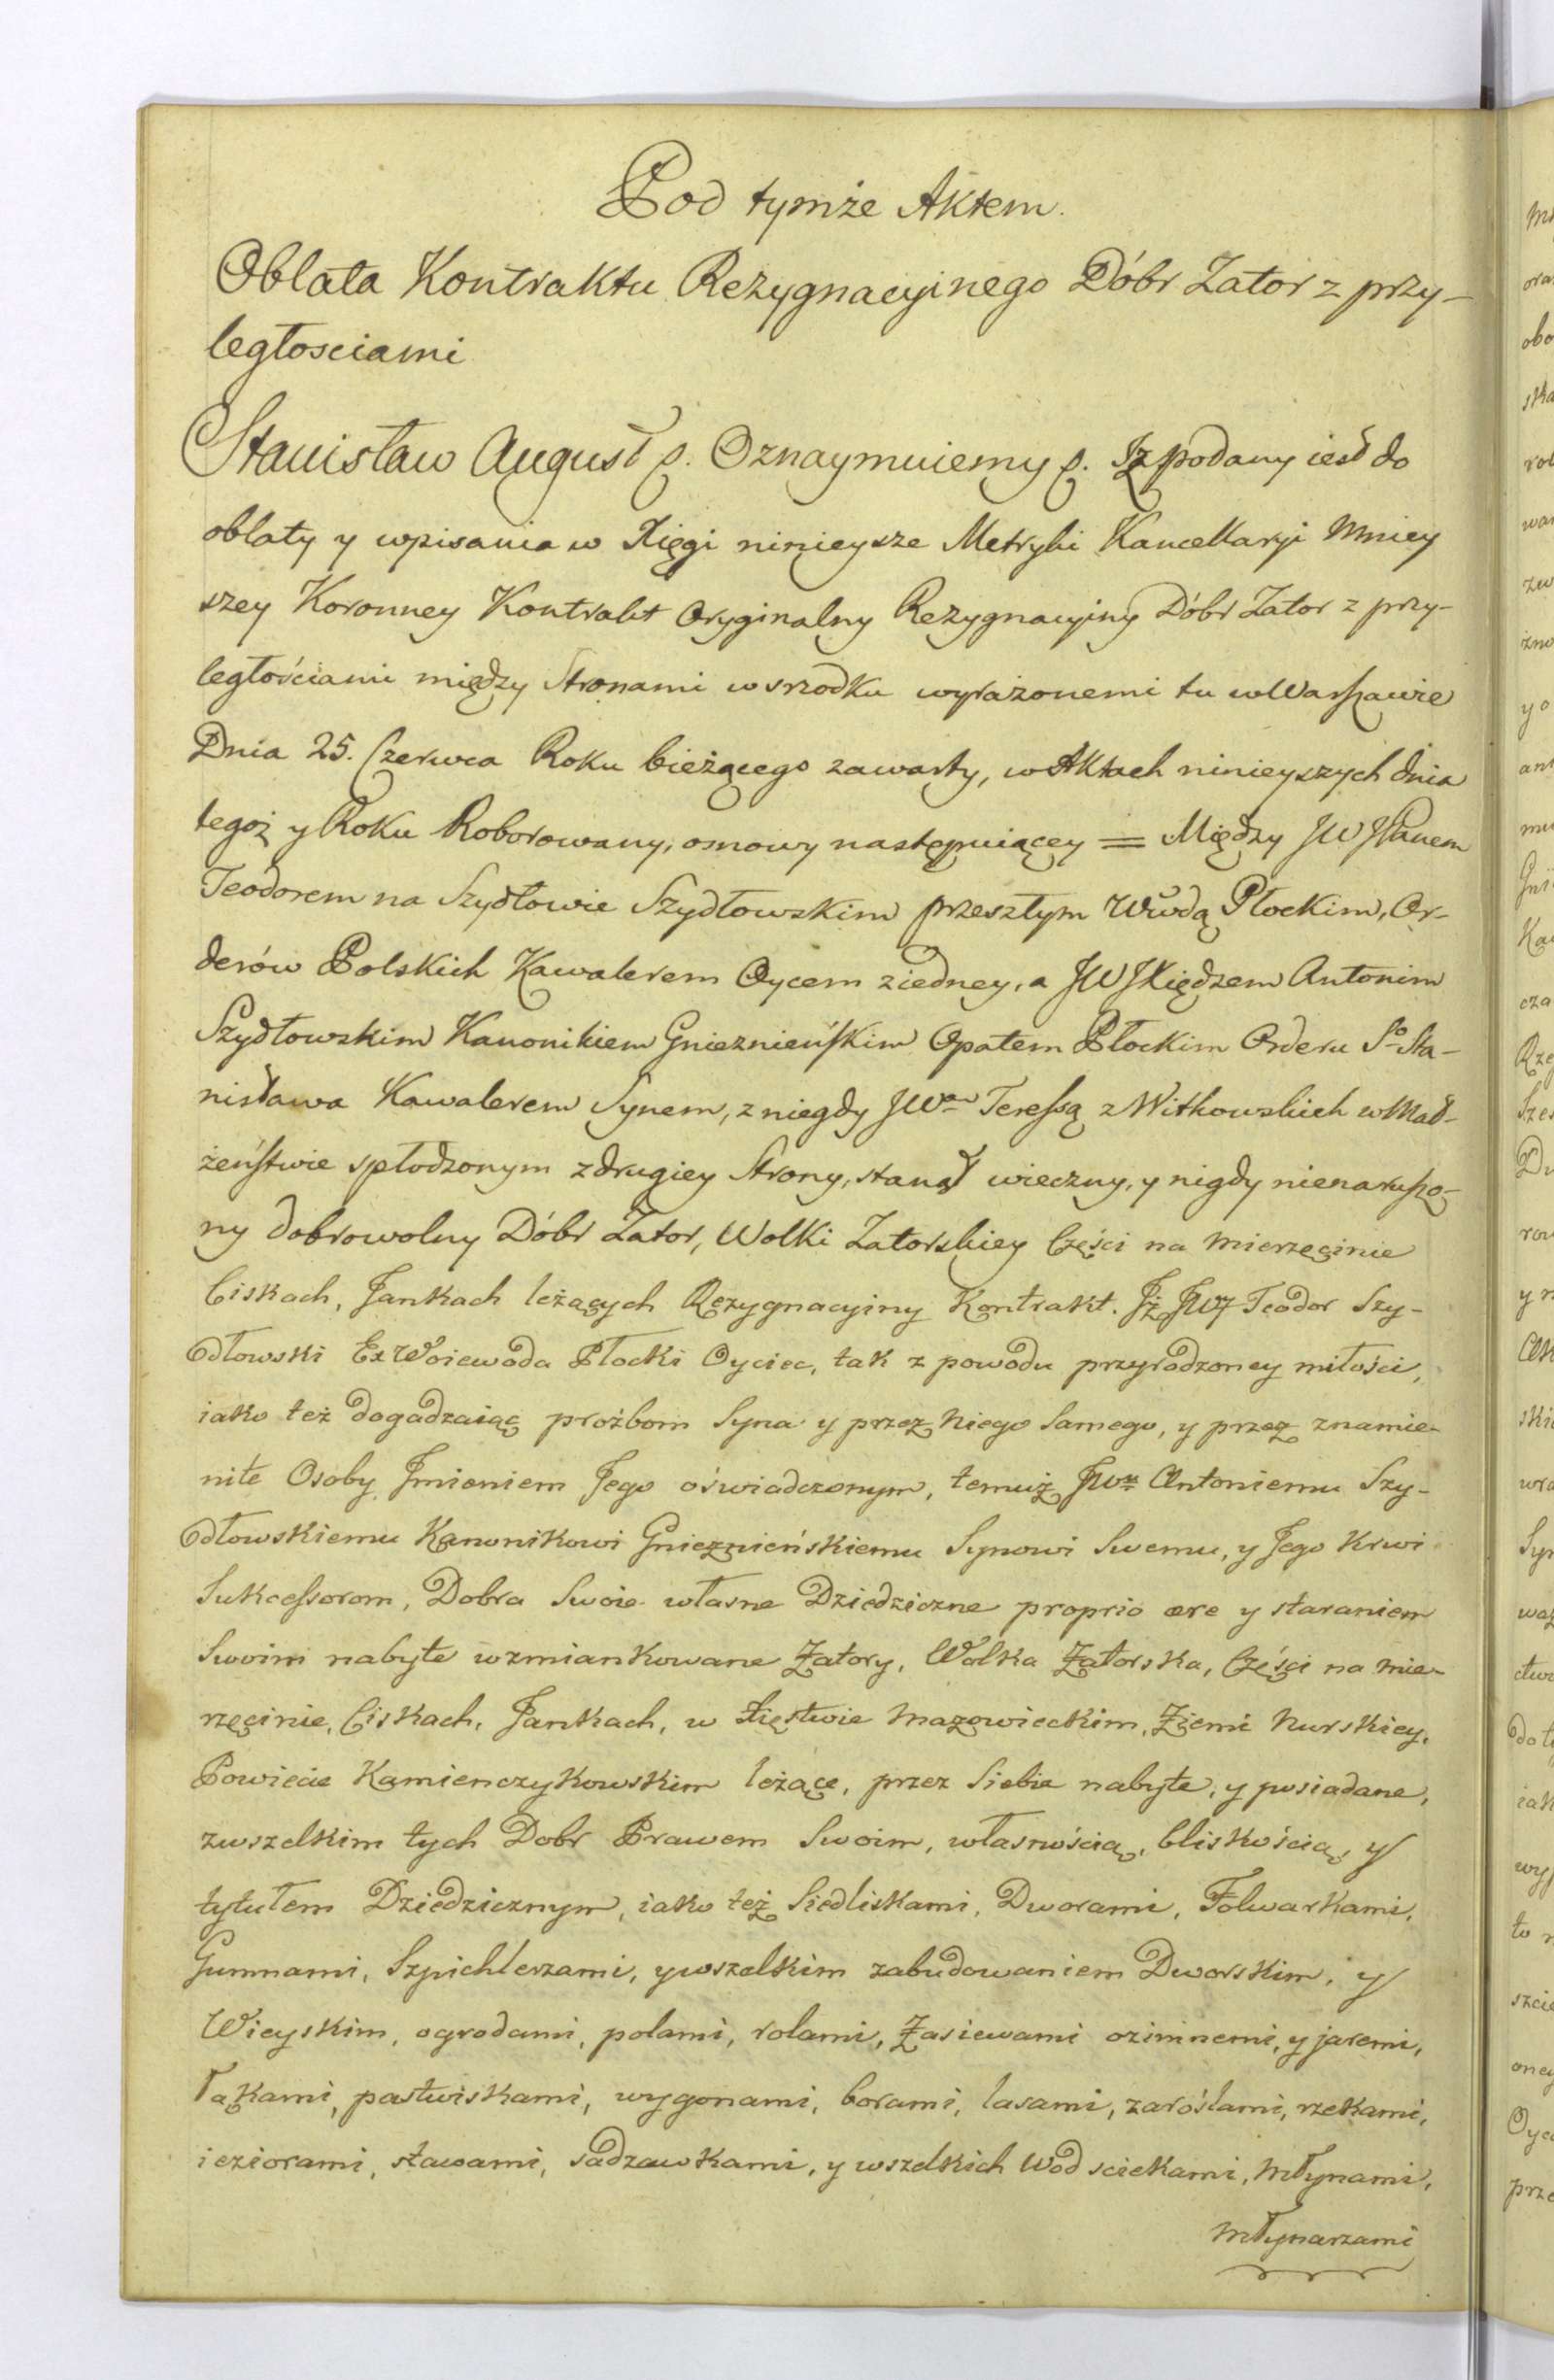 Pod tymże Aktem.
Oblata Kontraktu Rezygnacyinego Dóbr Zator z przy-
ległosciami
Stanisław August p. Oznaymuiemy p. Iz podany iest do
oblaty y wpisania w Xięgi ninieysze Metryki Kancellaryi Mniey
szey Koronney Kontrakt Oryginalny Rezygnacyiny Dóbr Zator z przy-
ległościami między Stronami wsrzodku wyrażonemi tu w Warszawie
Dnia 25. Czerwca Roku bieżącego zawarty, w Aktach ninieyszych dnia
tegoż y Roku Roborowany, osnowy następuiącey = Między JW JPanem
Teodorem na Szydłowie Szydłowskim przeszłym Wwdą Płockim, Or-
derów Polskich Kawalerem Oycem ziedney, a JW JXiędzem Antonim
Szydłowskim Kanonikiem Gnieznieńskim Opatem Płockim Orderu So Sta-
nisława Kawalerem Synem, z niegdy JWan Teressą z Witkowskich w Mał-
żeństwie spłodzonym z drugiey Strony, stanął wieczny, y nigdy nienaruszo-
ny dobrowolny Dóbr Zator, Wolki Zatorskiey Części na Mierzęcinie
Ciskach, Jankach leżących Rezygnacyiny Kontrakt. Jż JWJ Teodor Szy-
dłowski ExWoiewoda Płocki Oyciec, tak z powodu przyrodzoney miłości,
iako też dogadzaiąc prożbom Syna y przez Niego Samego, y przez znamie-
nite Osoby Jmieniem Jego oświadczonym, temuż JWmu Antoniemu Szy-
dłowskiemu Kanonikowi Gnieznieńskiemu Synowi Swemu, y Jego Krwi
Sukcessorom, Dobra Swoie własne Dziedziczne proprio ære y staraniem
Swoim nabyte wzmiankowane Zatory, Wolka Zatorska, Części na Mie-
rzęcinie, Ciskach, Jankach, w Xięstwie Mazowieckim, Ziemi Nurskiey,
Powiecie Kamienczykowskim leżące, przez Siebie nabyte, y posiadane,
zwszelkim tych Dobr Prawem Swoim, własnością, bliskością, y
tytułem Dziedzicznym, iako też Siedliskami, Dworami, Folwarkami,
Gumnami, Szpichlerzami, y wszelkim zabudowaniem Dworskim, y
Wieyskim, ogrodami, polami, rolami, Zasiewami oziminemi, y jaremi,
łąkami, pastwiskami, wygonami, borami, lasami, zaroślami, rzekami,
ieziorami, stawami, sadzawkami, y wszelkich Wod sciekami, Młynami,
Młynarzami